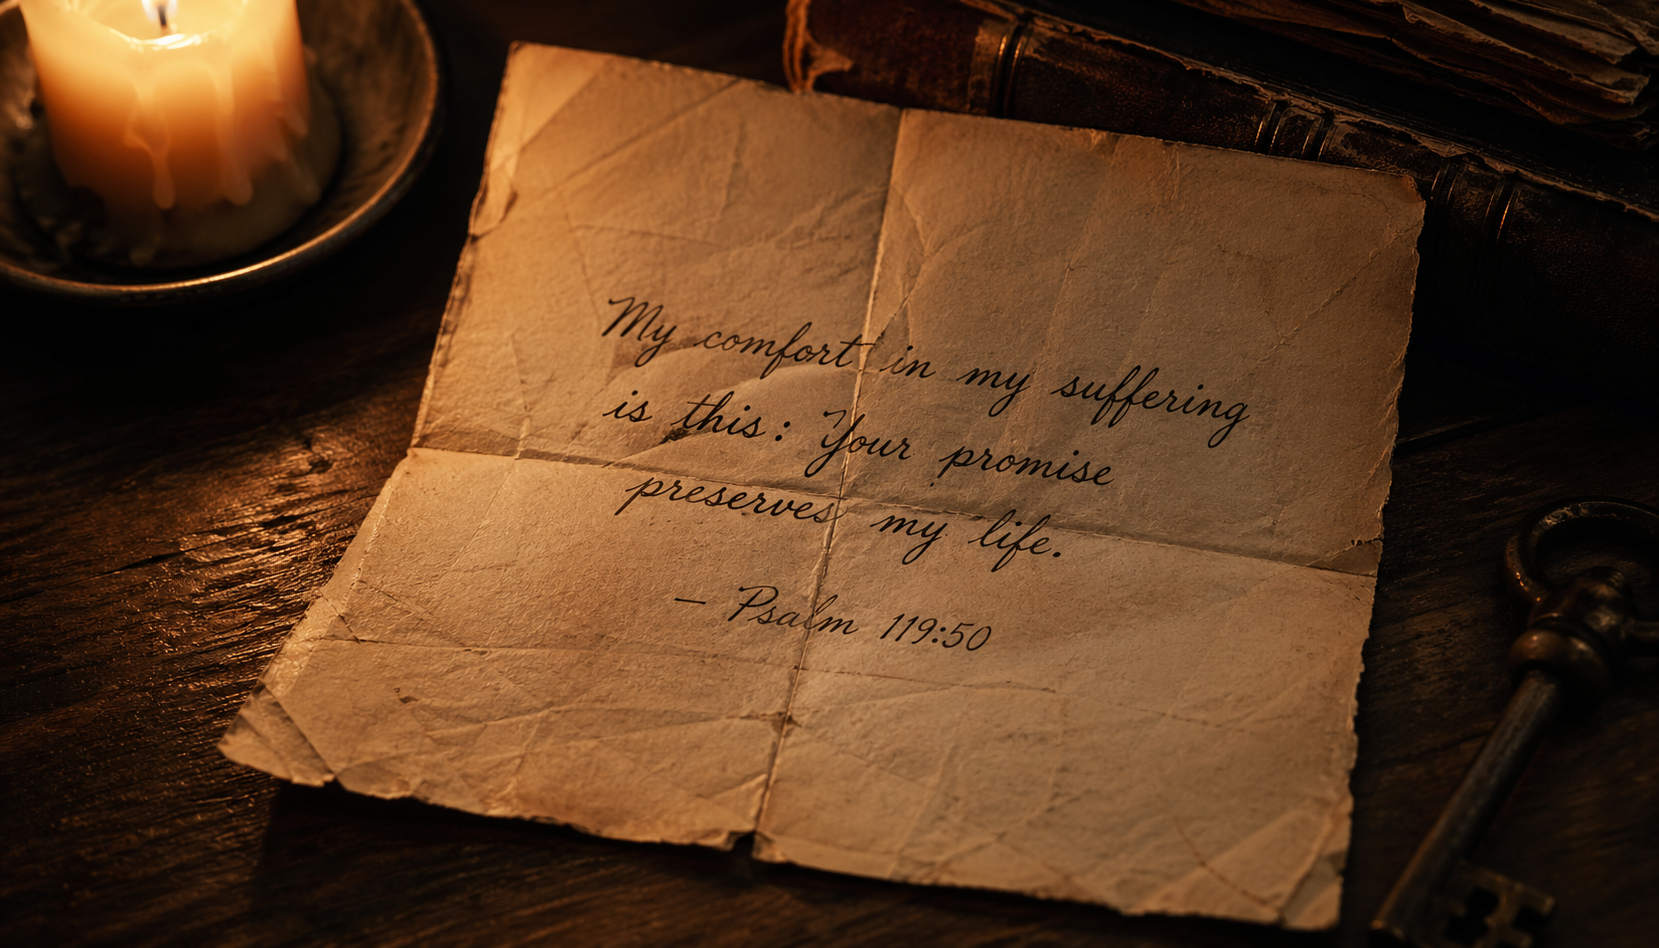 My comfort in my suffering
is this: Your promise
preserves my life.
– Psalm 119:50